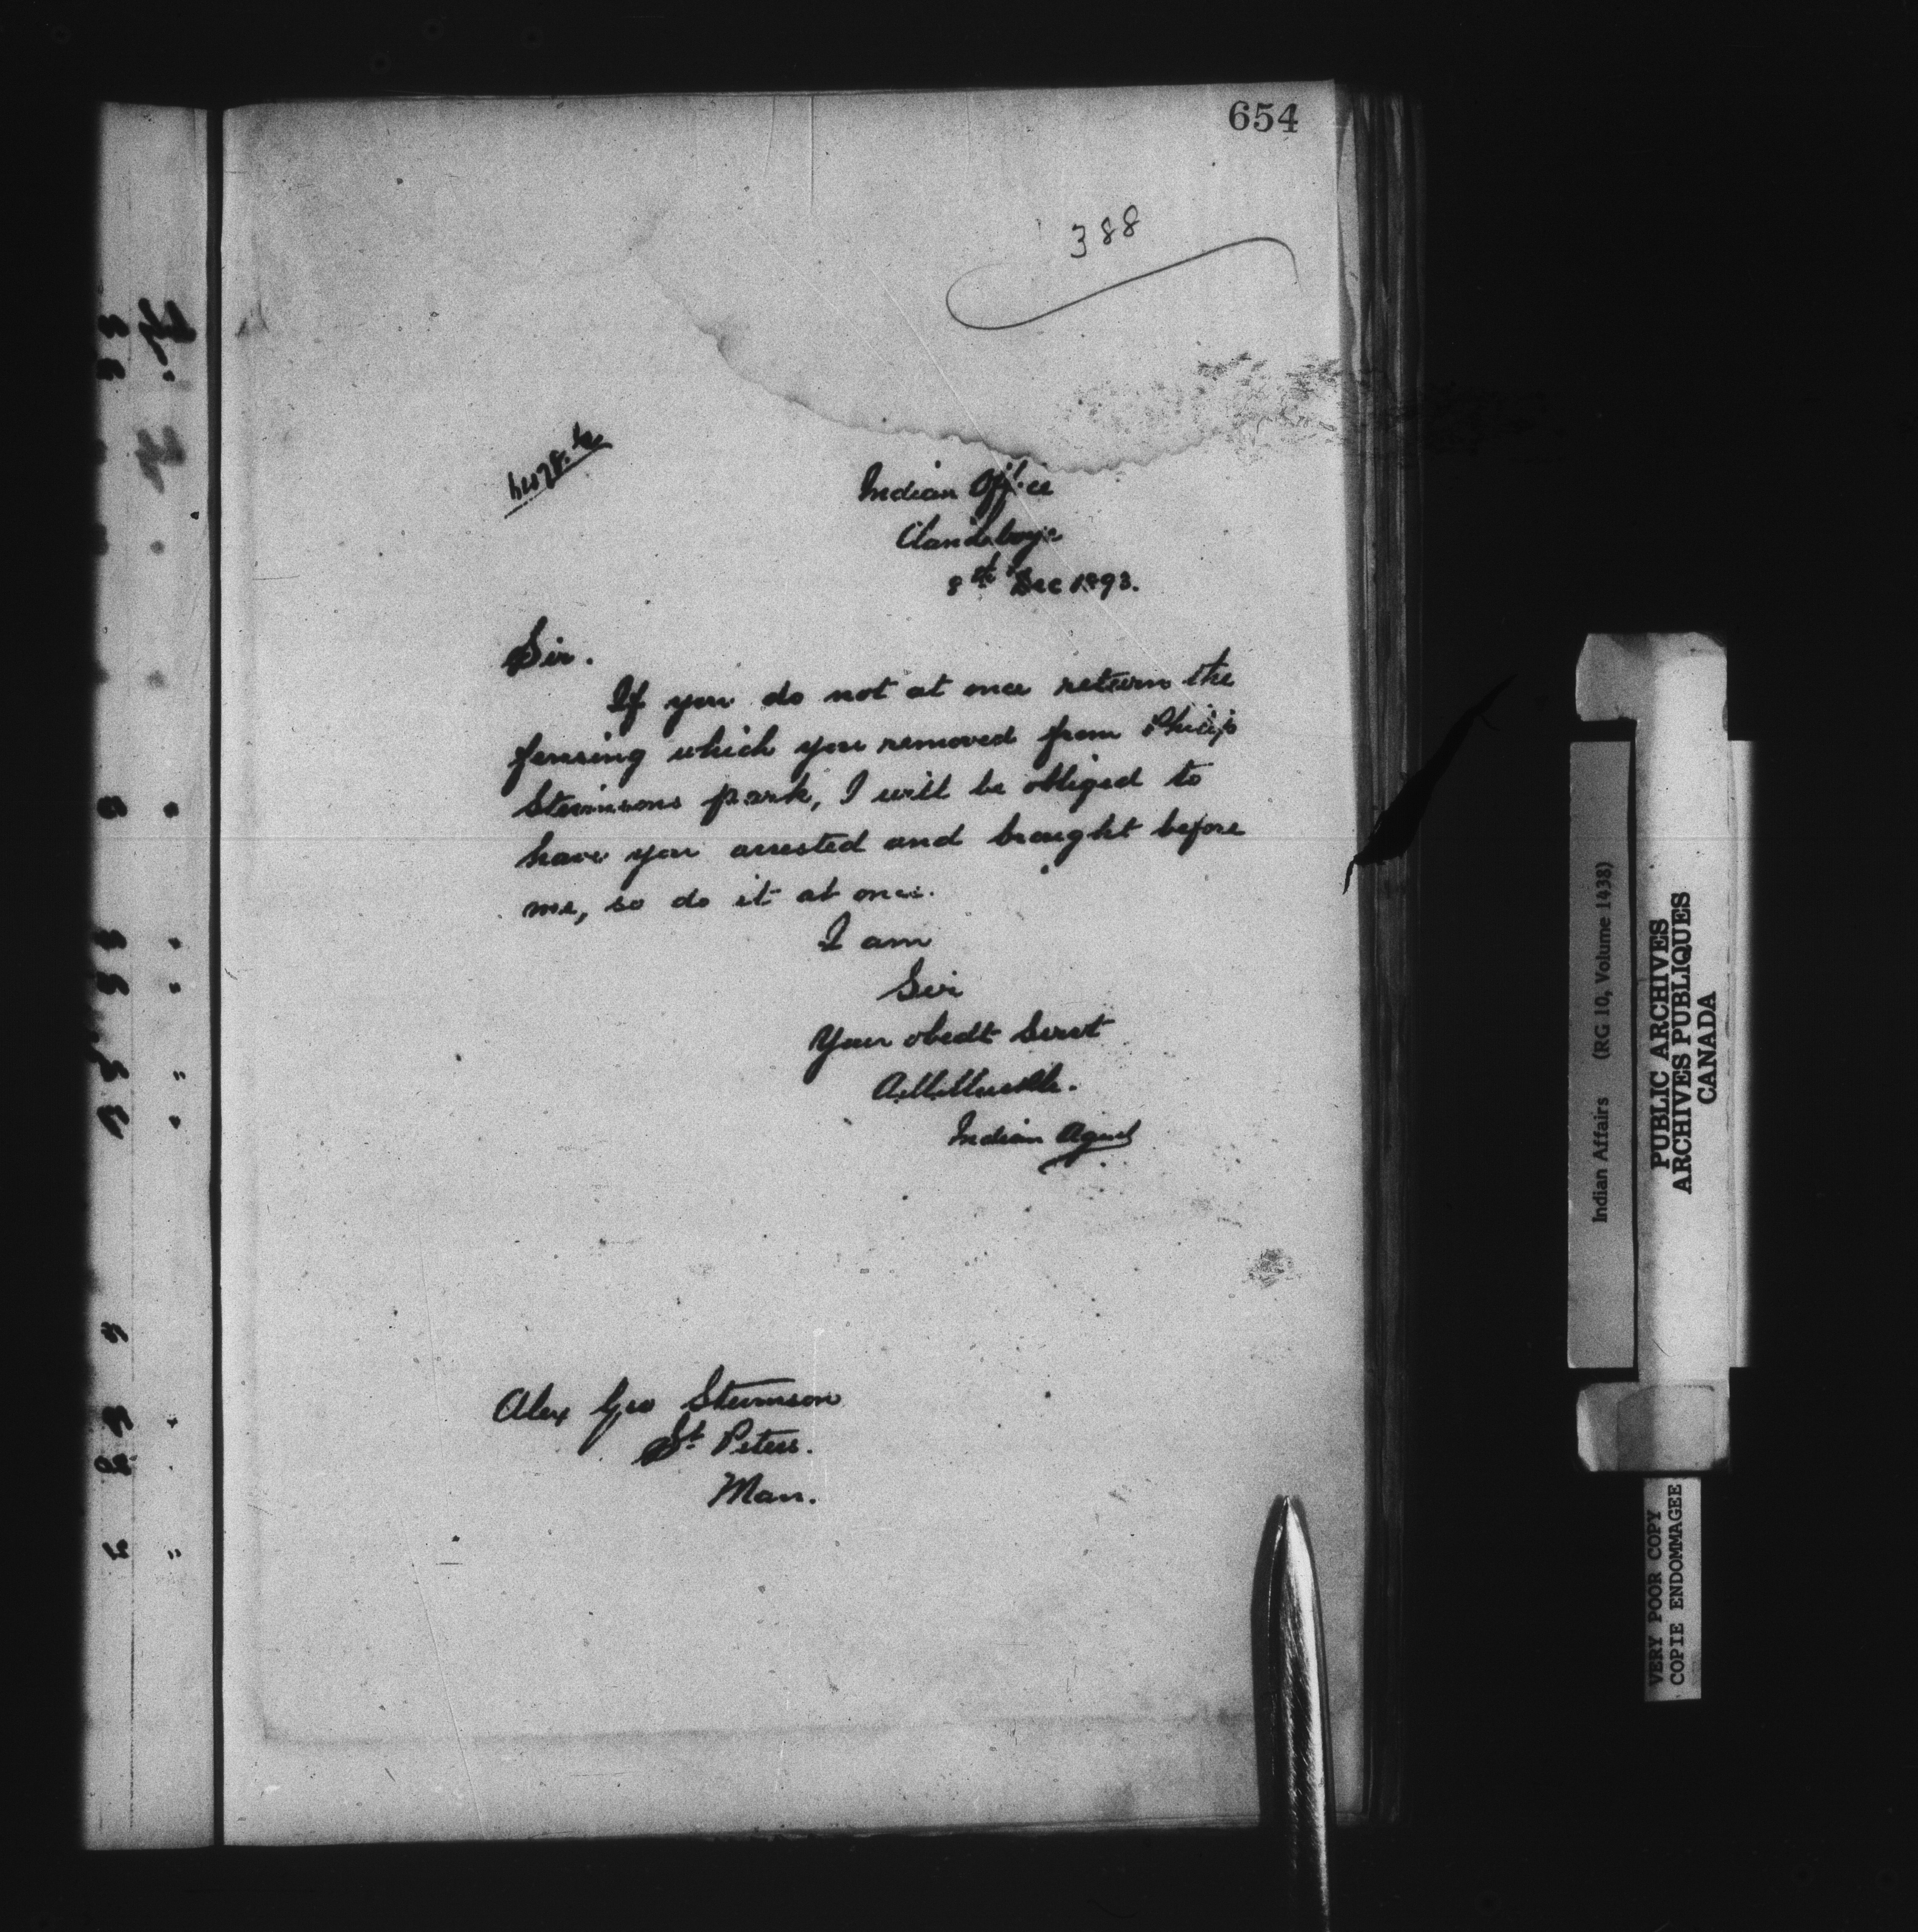 654
388
Indian Office
Clandeboye
8th Dec 1893.
Sir.
If you do not at once return the
fencing which you removed from Philip
Stevensons park, I will be obliged to
have you arrested and brought before
me, so do it at once.
I am
Sir
Your obedt Servt
A.M. Muckle.
Indian Agent
Alex Geo Stevenson
St Peters.
Man.
Indian Affairs (RG 10, Volume 1438)
PUBLIC ARCHIVES
ARCHIVES PUBLIQUES
CANADA
VERY POOR COPY
COPIE ENDOMMAGEE